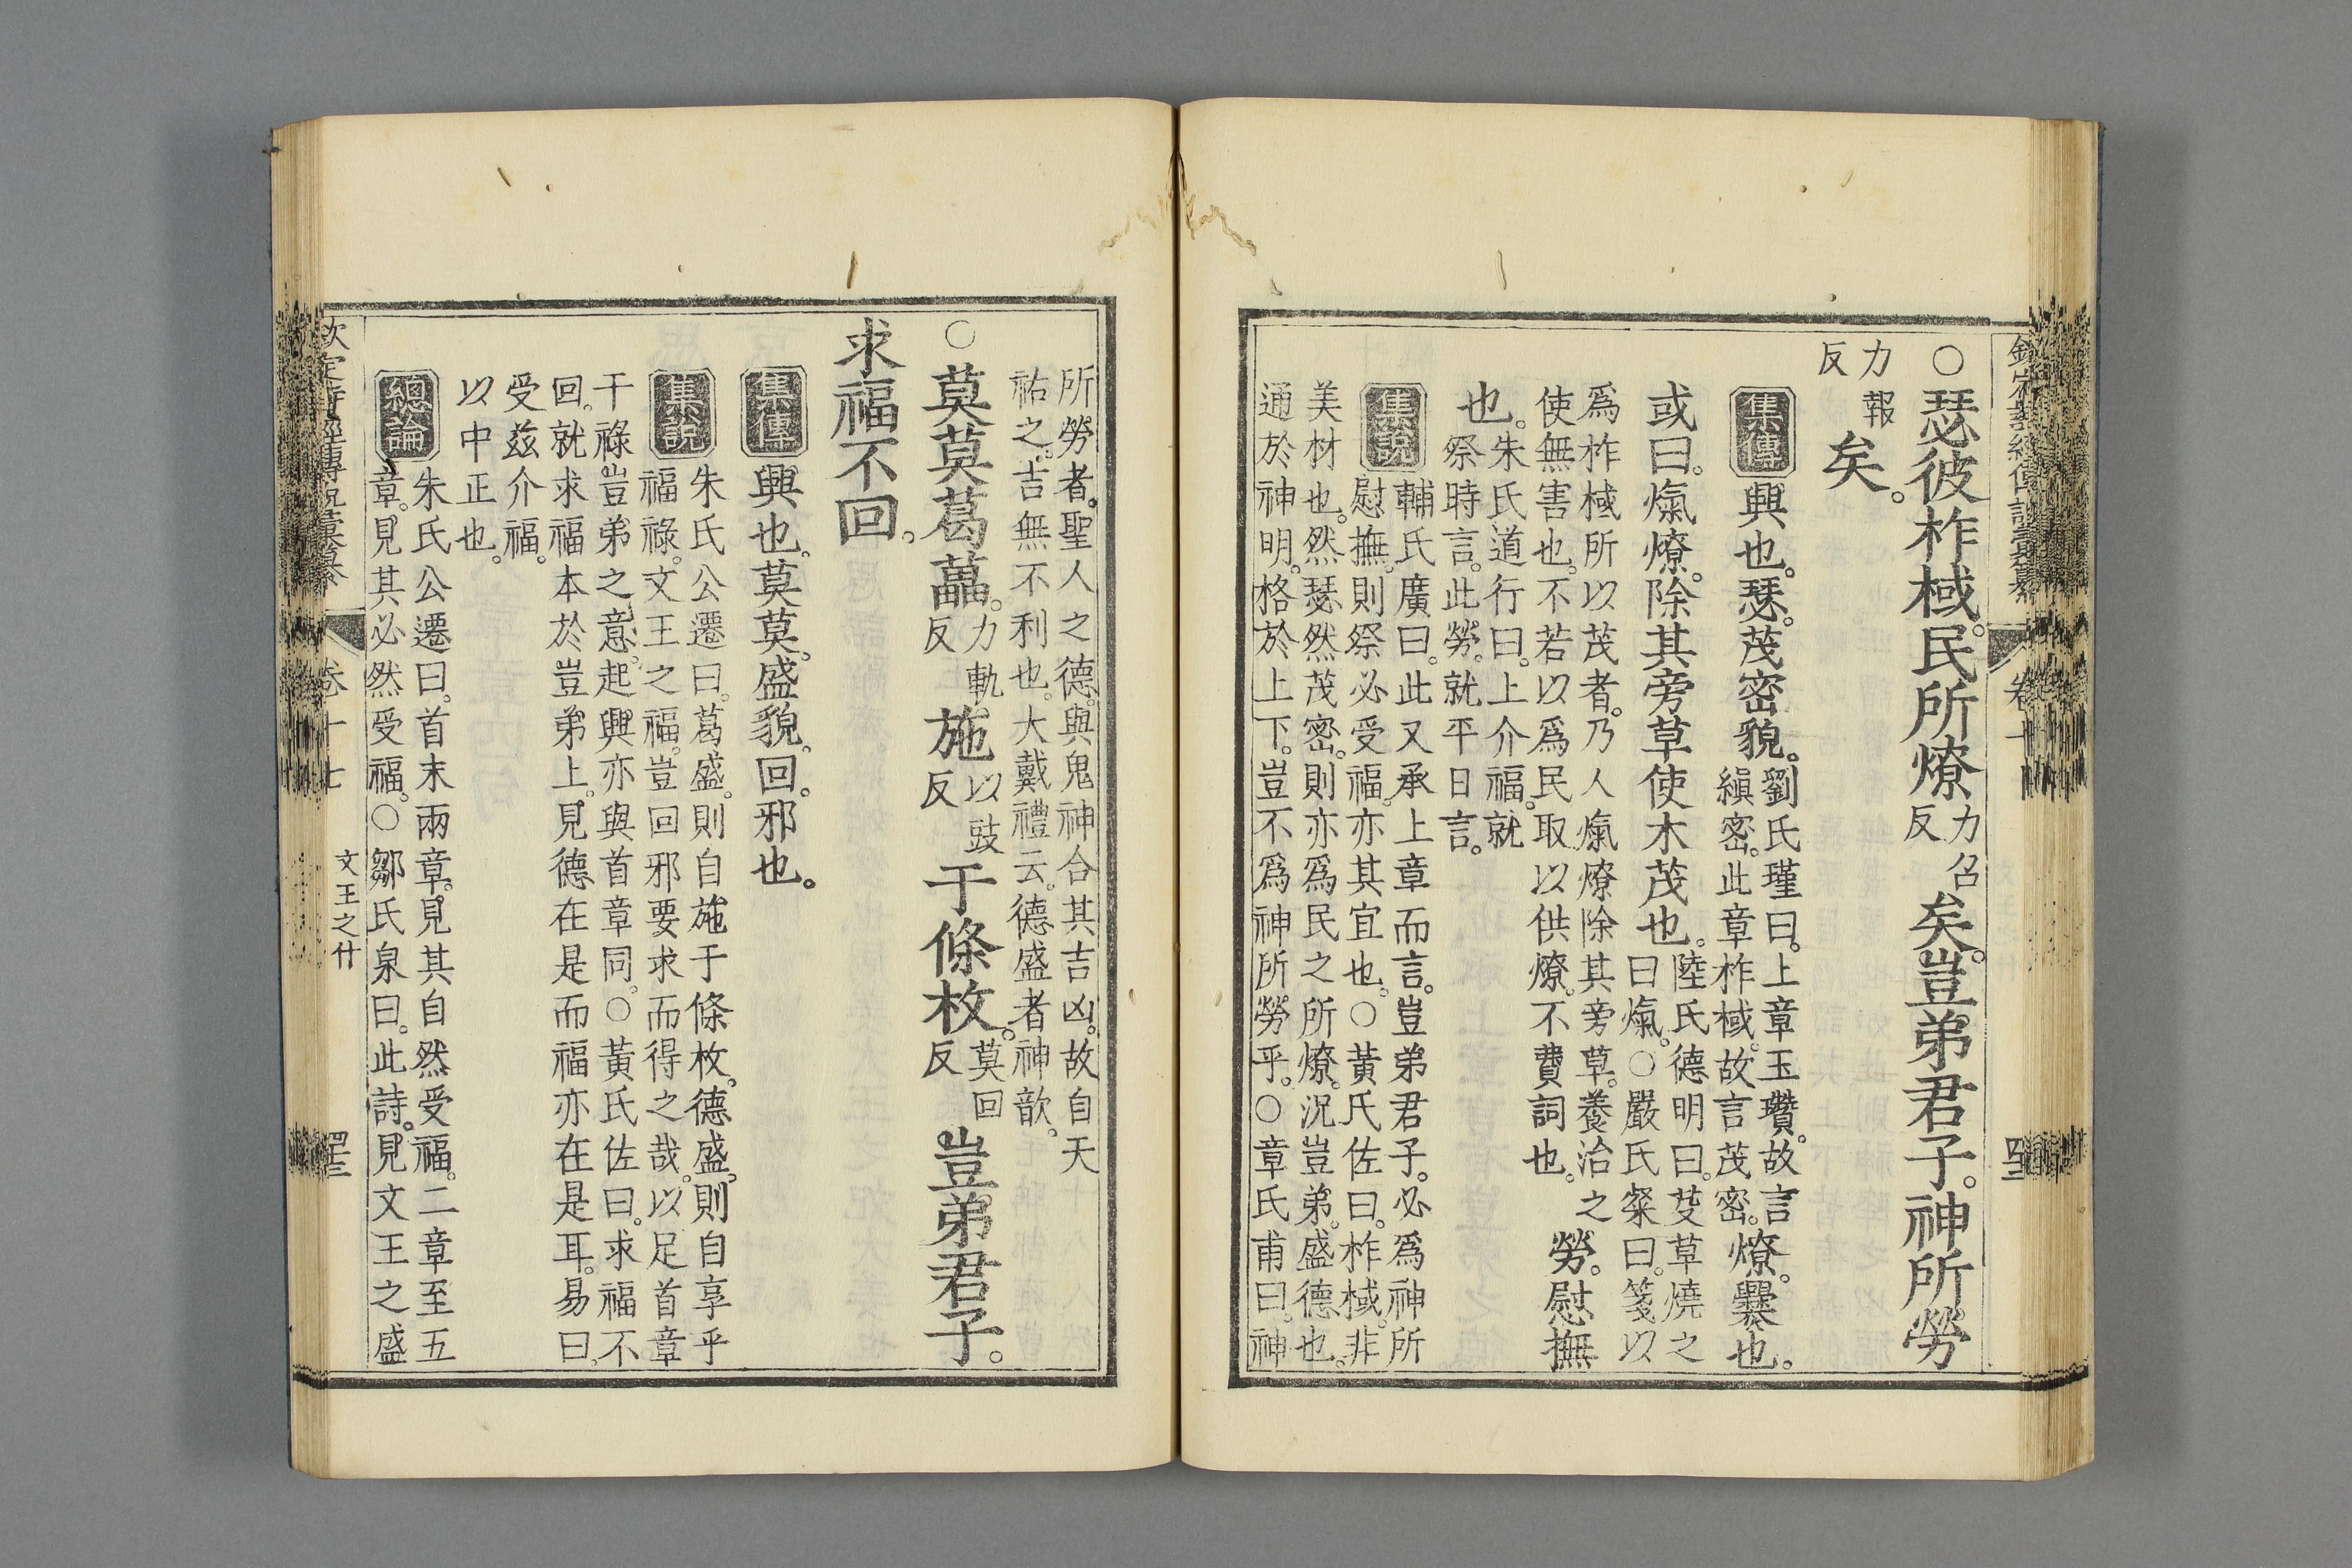 ○瑟彼柞棫。民所燎力召反矣。豈弟君子。神所勞
力報反矣。
集傳 興也。瑟。茂密貌。劉氏瑾曰。上章玉瓚。故言縝密。此章柞棫。故言茂密。燎。爨也。
或曰。熂燎。除其旁草使木茂也。陸氏德明曰。芟草燒之曰熂。○嚴氏粲曰。箋以
爲柞棫所以茂者。乃人熂燎除其旁草。養治之
使無害也。不若以爲民取以供燎。不費詞也。勞。慰撫
也。朱氏道行曰。上介福。就
祭時言。此勞。就平日言。
集說 輔氏廣曰。此又承上章而言。豈弟君子。必爲神所
慰撫。則祭必受福。亦其宜也。○黃氏佐曰。柞棫。非
美材也。然瑟然茂密。則亦爲民之所燎。況豈弟。盛德也。
通於神明。格於上下。豈不爲神所勞乎。○章氏甫曰。神
所勞者。聖人之德。與鬼神合其吉凶。故自天
祐之。吉無不利也。大戴禮云。德盛者神歆。
○莫莫葛藟。力軌反施以豉反于條枚。莫回反豈弟君子。
求福不回。
集傳 興也。莫莫。盛貌。回。邪也。
集說 朱氏公遷曰。葛盛。則自施于條枚。德盛。則自享乎
福祿。文王之福。豈回邪要求而得之哉。以足首章
干祿豈弟之意。起興亦與首章同。○黃氏佐曰。求福不
回。就求福本於豈弟上。見德在是而福亦在是耳。易曰。
受茲介福。
以中正也。
總論 朱氏公遷曰。首末兩章。見其自然受福。二章至五
章。見其必然受福。○鄒氏泉曰。此詩。見文王之盛
卷十七
文王之什